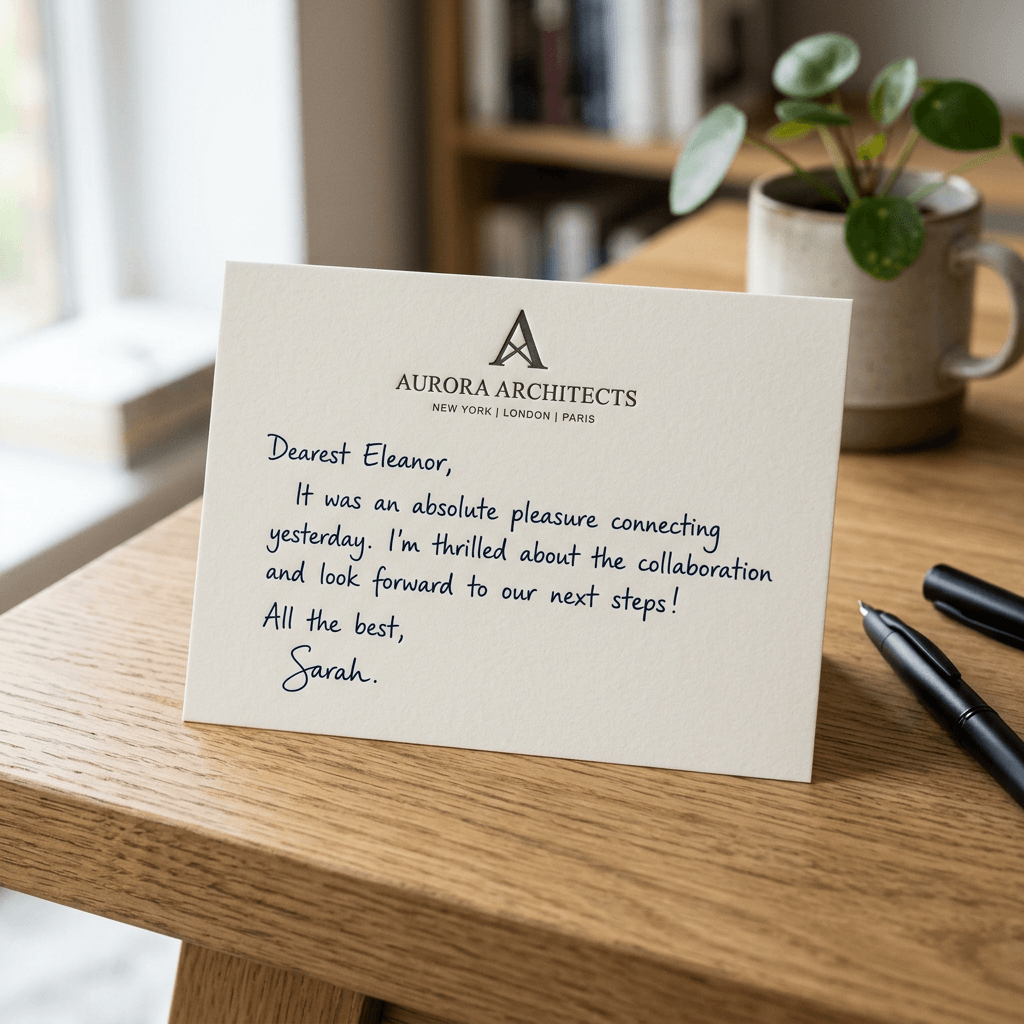 A
AURORA ARCHITECTS
NEW YORK | LONDON | PARIS
Dearest Eleanor,
It was an absolute pleasure connecting
yesterday. I'm thrilled about the collaboration
and look forward to our next steps!
All the best,
Sarah.